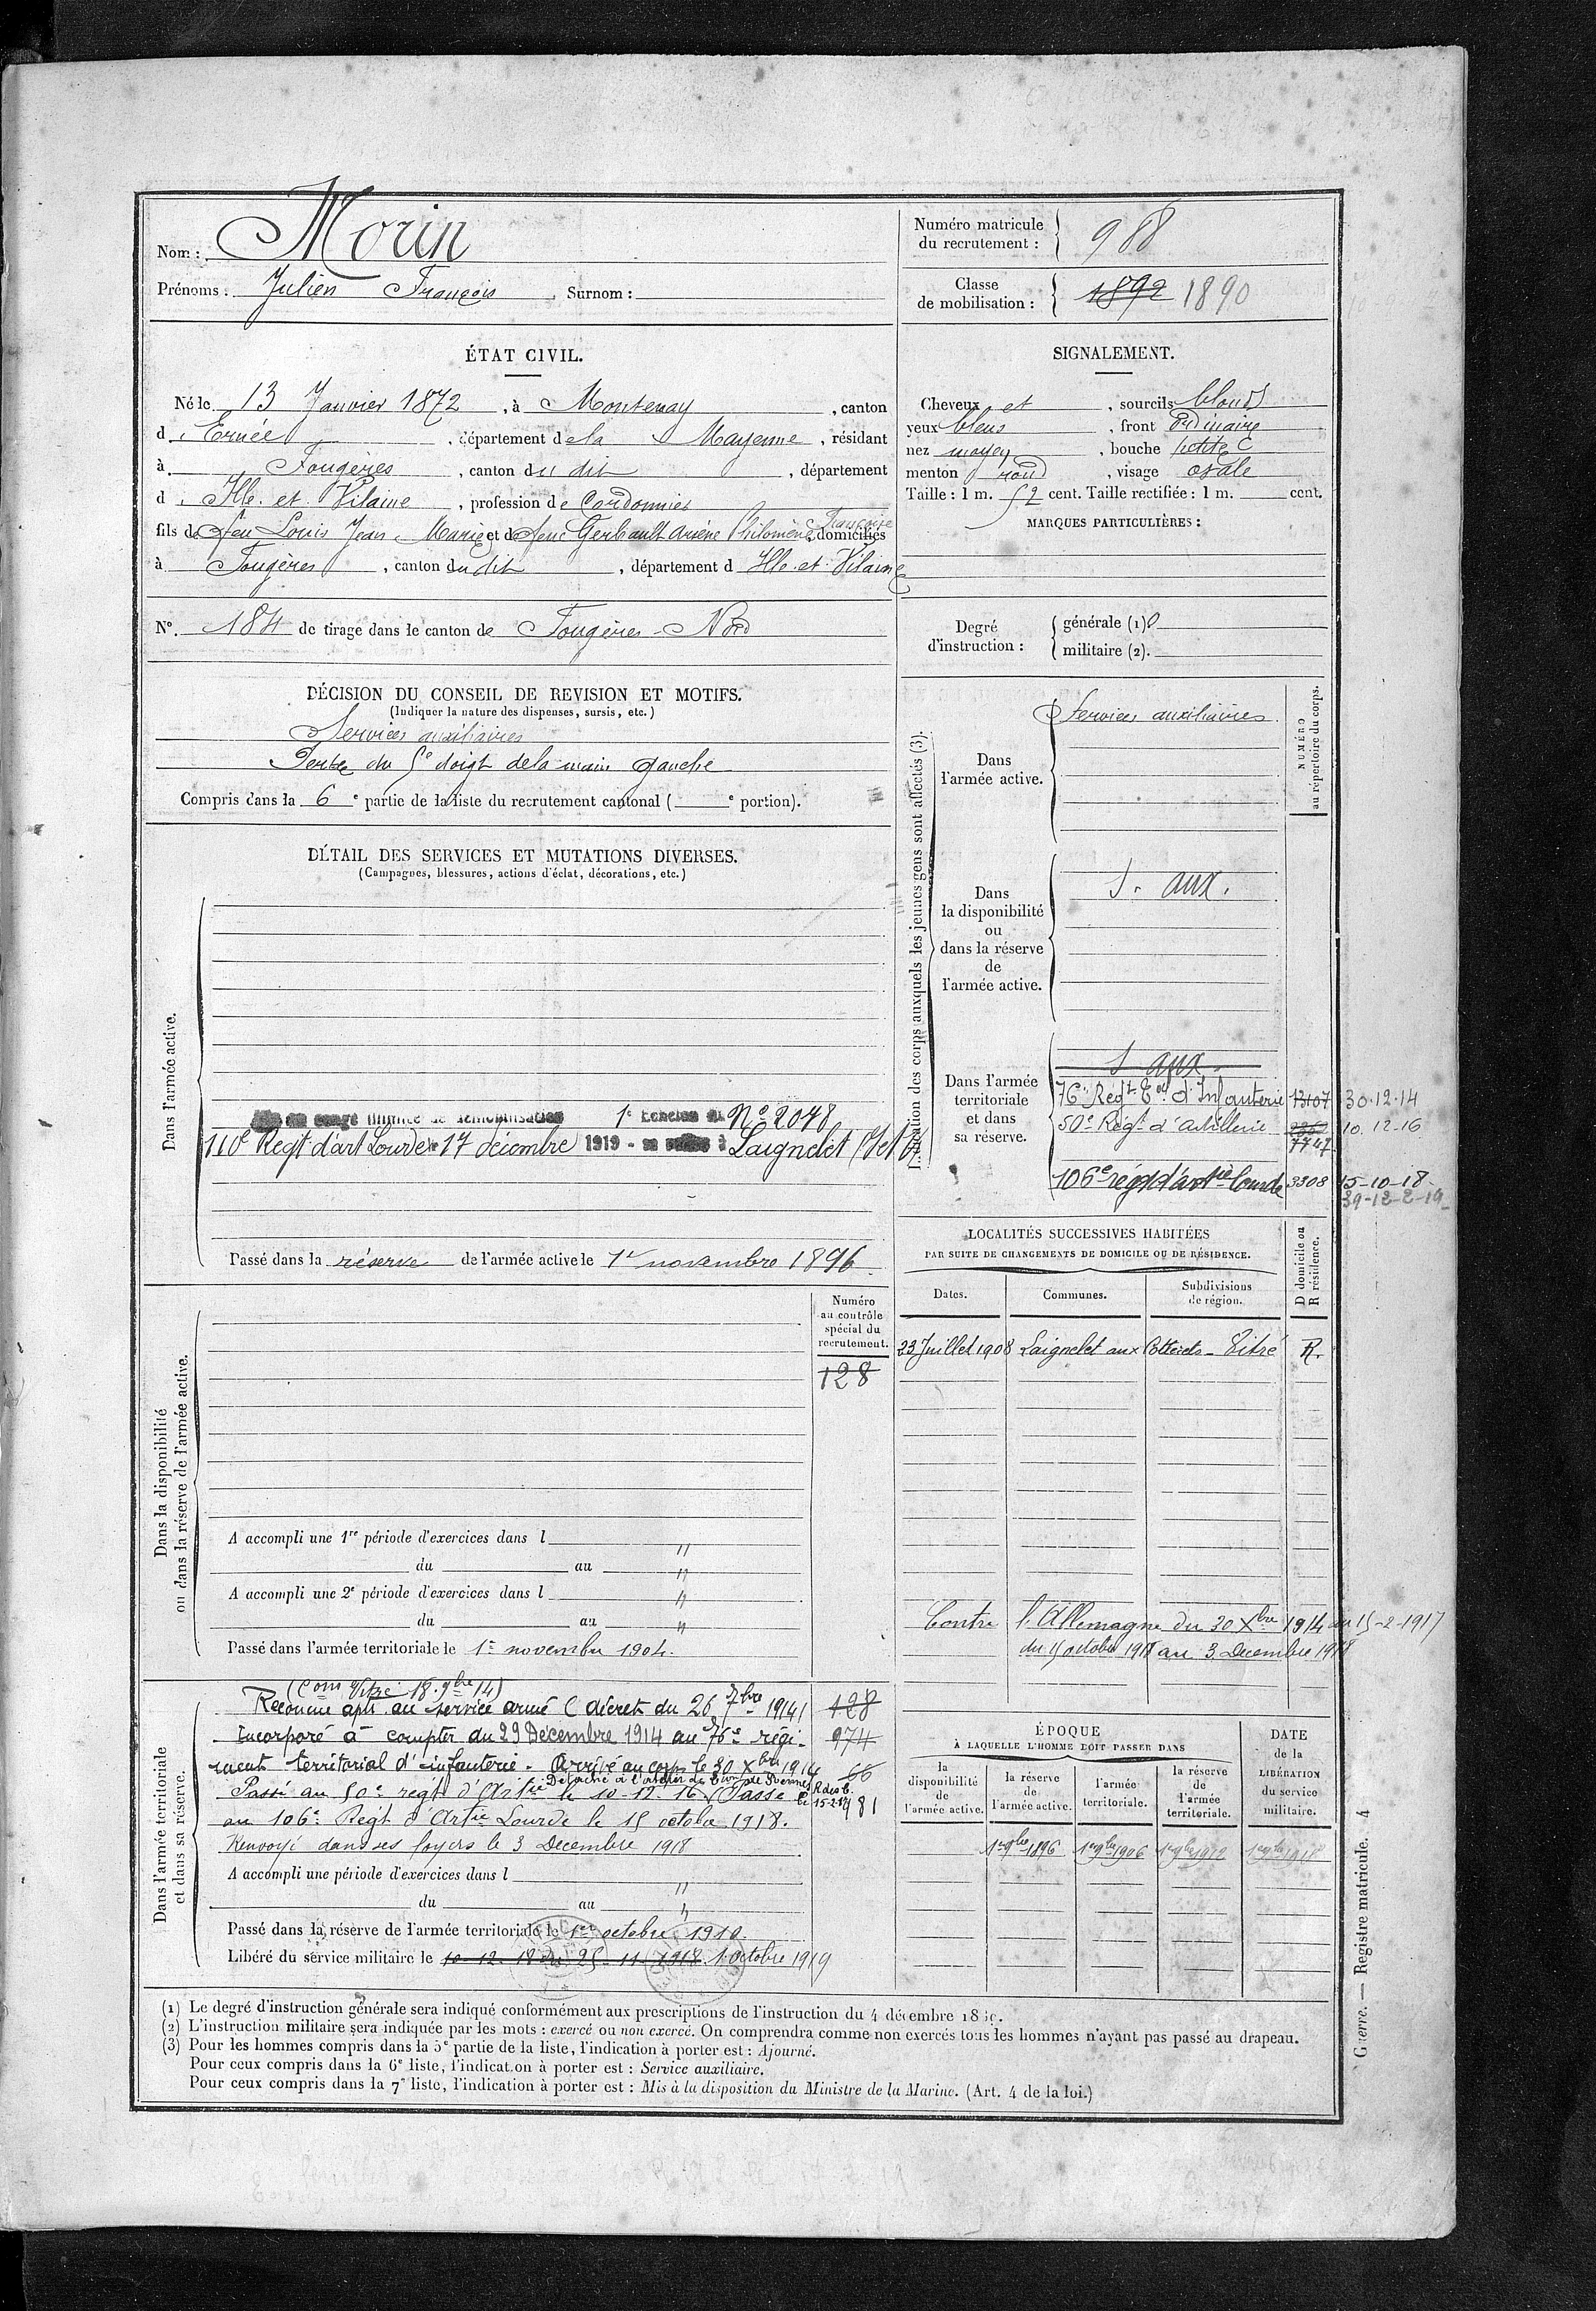 Nom : Morin
Prénoms : Julien François Surnom :
Numéro matricule du recrutement : 988
Classe de mobilisation : 1892 1890
ÉTAT CIVIL.
Né le 13 Janvier 1872, à Montenay, canton
d Ernée, département de la Mayenne, résidant
à Fougères, canton du dit, département
d Ille et Vilaine, profession de Cordonnier
fils de feu Louis Jean Marie et de feue Gerbault Arsène Philomène Françoise, domiciliés
à Fougères, canton du dit, département d Ille et Vilaine
N°. 184 de tirage dans le canton de Fougères-Nord
SIGNALEMENT.
Cheveux et, sourcils blonds
yeux bleus, front Ordinaire
nez moyen, bouche petite
menton rond, visage ovale
Taille : 1 m. 52 cent. Taille rectifiée : 1 m. cent.
MARQUES PARTICULIÈRES :
Degré d'instruction :
générale (1) 0
militaire (2).
DÉCISION DU CONSEIL DE REVISION ET MOTIFS.
(Indiquer la nature des dispenses, sursis, etc.)
Services auxiliaires
Perte du 5e doigt de la main gauche
Compris dans la 6e partie de la liste du recrutement cantonal (e portion).
DÉTAIL DES SERVICES ET MUTATIONS DIVERSES.
(Campagnes, blessures, actions d'éclat, décorations, etc.)
Dans l'armée active.
1e Echelon N° 2048
110e Regt d'art Lourde 17 décembre 1919 - Laignelet
Passé dans la réserve de l'armée active le 1er novembre 1896
Indication des corps auxquels les jeunes gens sont affectés (3).
NUMÉRO au répertoire du corps.
Dans l'armée active.
Services auxiliaires
Dans la disponibilité ou dans la réserve de l'armée active.
S. aux.
Dans l'armée territoriale et dans sa réserve.
S aux.
76e Regt Eal d'Infanterie 13107 30.12.14
50e Regt d'artillerie 7747 10.12.16
106e régt d'artie lourde 3308 15-10-18
LOCALITÉS SUCCESSIVES HABITÉES
PAR SUITE DE CHANGEMENTS DE DOMICILE OU DE RÉSIDENCE.
Dates. Communes. Subdivisions de région. D domicile ou R résidence.
23 Juillet 1908 Laignelet aux Vitré R.
Contre l'Allemagne du 30 Xbre 1914 au 15-2-1917
du 15 octobre 1918 au 3 Decembre 1918
Dans la disponibilité ou dans la réserve de l'armée active.
Numéro au contrôle spécial du recrutement.
128
A accompli une 1re période d'exercices dans l "
du au "
A accompli une 2e période d'exercices dans l "
du au "
Passé dans l'armée territoriale le 1er novembre 1904.
Dans l'armée territoriale et dans sa réserve.
(Com Vitré 18.9bre 14)
Reconnu apte au service armé (décret du 26 7bre 1914) 128
Incorporé à compter du 29 Décembre 1914 au 76e régi- 974
ment territorial d'infanterie. Arrivé au corps le 30 Xbre 1914 66
Passé au 50e regt d'Artie le 10-12-16 Passé 981
Détaché à l'atelier de de Rennes
le 15-2-17
au 106e Regt d'Artie Lourde le 15 octobre 1918.
Renvoyé dans ses foyers le 3 Decembre 1918
A accompli une période d'exercices dans l "
du au "
Passé dans la réserve de l'armée territoriale le 1er octobre 1910.
Libéré du service militaire le 10-12-18 du 25-11-1918 1 octobre 1919
ÉPOQUE
À LAQUELLE L'HOMME DOIT PASSER DANS
la disponibilité de l'armée active. la réserve de l'armée active. l'armée territoriale. la réserve de l'armée territoriale.
DATE de la LIBÉRATION du service militaire.
1er 9bre 1896 1er 9bre 1906 1er 9bre 1912 1er 9bre 1918
(1) Le degré d'instruction générale sera indiqué conformément aux prescriptions de l'instruction du 4 décembre
(2) L'instruction militaire sera indiquée par les mots : exercé ou non exercé. On comprendra comme non exercés tous les hommes n'ayant pas passé au drapeau.
(3) Pour les hommes compris dans la 5e partie de la liste, l'indication à porter est : Ajourné.
Pour ceux compris dans la 6e liste, l'indication à porter est : Service auxiliaire.
Pour ceux compris dans la 7e liste, l'indication à porter est : Mis à la disposition du Ministre de la Marine. (Art. 4 de la loi.)
Guerre. — Registre matricule. 4